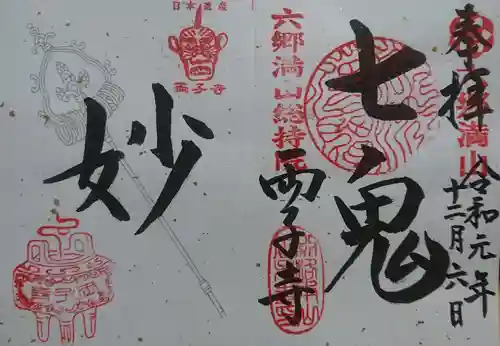 奉拝
令和元年
十二月六日
七鬼
六郷満山総持院
両子寺
妙
日本遺産
両子寺